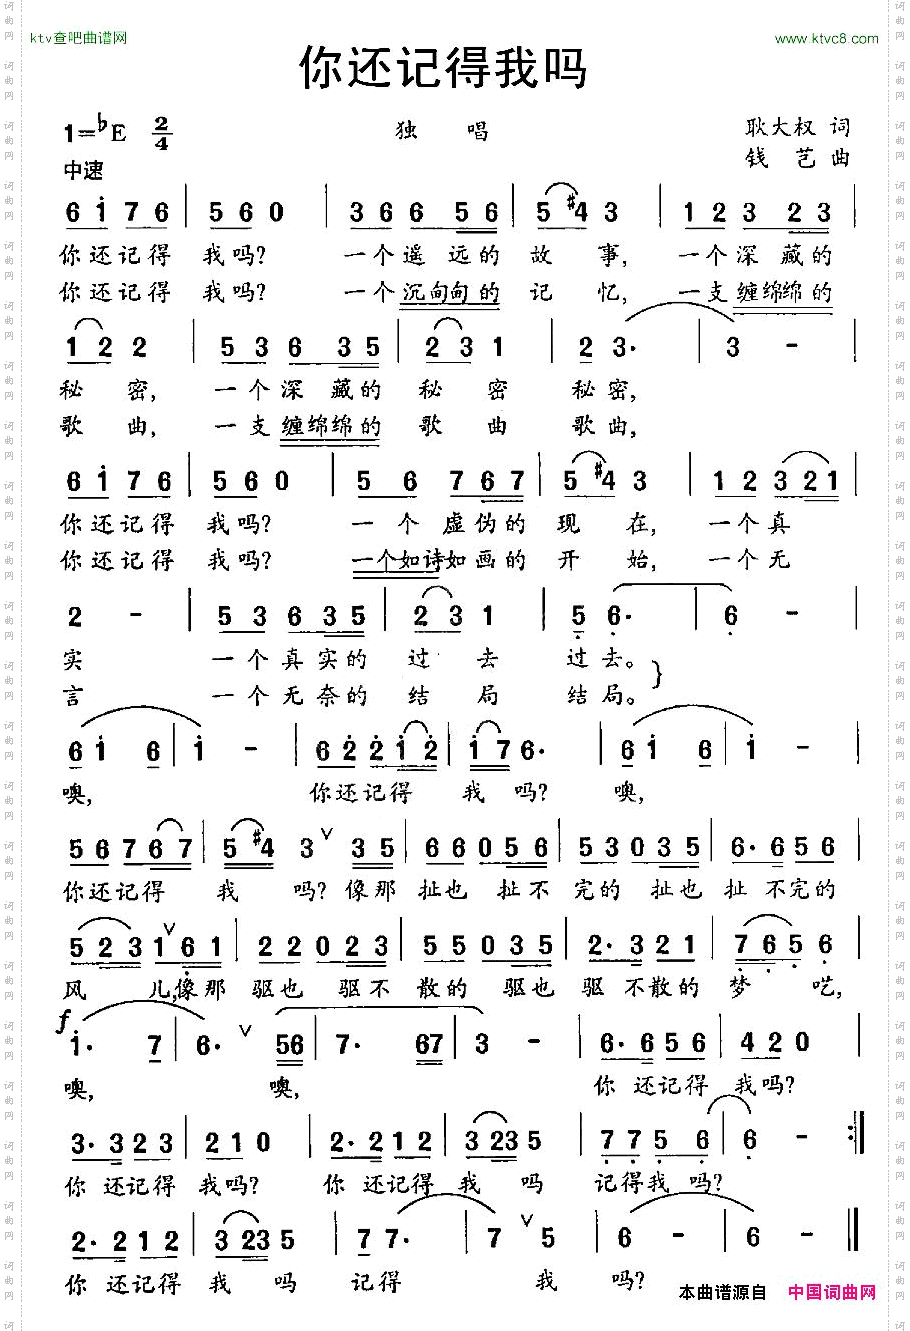 ktv查吧曲谱网
www.ktvc8.com
你还记得我吗
1=♭E 2/4
独 唱
耿大权 词
中速
钱 艺 曲
6 i 7 6 | 5 6 0 | 3 6 6 5 6 | 5 #4 3 | 1 2 3 2 3 |
你还记得 我吗? 一个遥 远的 故 事, 一个深 藏的
你还记得 我吗? 一个沉甸甸的 记 忆, 一支缠绵绵的
1 2 2 | 5 3 6 3 5 | 2 3 1 | 2 3· | 3 - |
秘 密, 一个深 藏的 秘 密 秘密,
歌 曲, 一支缠绵绵的 歌 曲 歌曲,
6 i 7 6 | 5 6 0 | 5 6 7 6 7 | 5 #4 3 | 1 2 3 2 1 |
你还记得 我吗? 一 个 虚伪的 现 在, 一个真
你还记得 我吗? 一个如诗如画的 开 始, 一个无
2 - | 5 3 6 3 5 | 2 3 1 | 5 6· | 6 - |
实 一个真实的 过 去 过去。
言 一个无奈的 结 局 结局。
6 i 6 | i - | 6 2 2 i 2 | i 7 6· | 6 i 6 | i - |
噢, 你还记得 我 吗? 噢,
5 6 7 6 7 | 5 #4 3 ∨ 3 5 | 6 6 0 5 6 | 5 3 0 3 5 | 6· 6 5 6 |
你还记得 我 吗? 像那 扯也 扯不 完的 扯也 扯 不完的
5 2 3 1 ∨ 6 1 | 2 2 0 2 3 | 5 5 0 3 5 | 2· 3 2 1 | 7 6 5 6 |
风 儿,像那 驱也 驱不 散的 驱也 驱 不散的 梦 呓,
f
i· 7 | 6· ∨ 56 | 7· 67 | 3 - | 6· 6 5 6 | 4 2 0 |
噢, 噢, 你 还记得 我吗?
3· 3 2 3 | 2 1 0 | 2· 2 1 2 | 3 23 5 | 7 7 5 6 | 6 - :|
你 还记得 我吗? 你 还记得 我 吗 记得我 吗?
2· 2 1 2 | 3 23 5 | 7 7· | 7 ∨ 5 | 6 - | 6 - ‖
你 还记得 我 吗 记得 我 吗?
本曲谱源自 中国词曲网